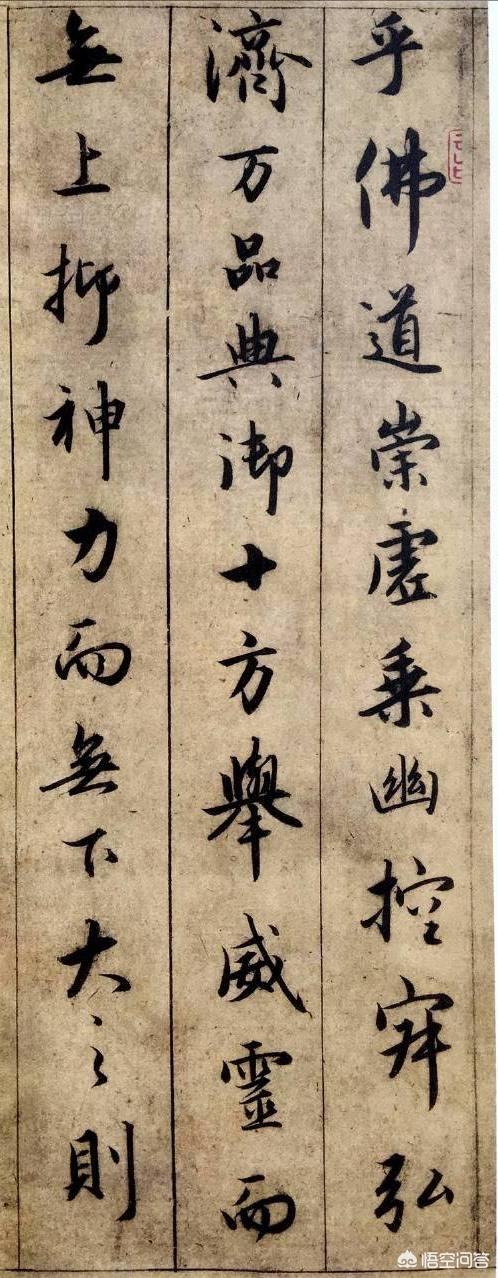 乎佛道崇虚乗幽控寂弘
濟万品典御十方舉威靈而
無上抑神力而無下大之則
悟空问答